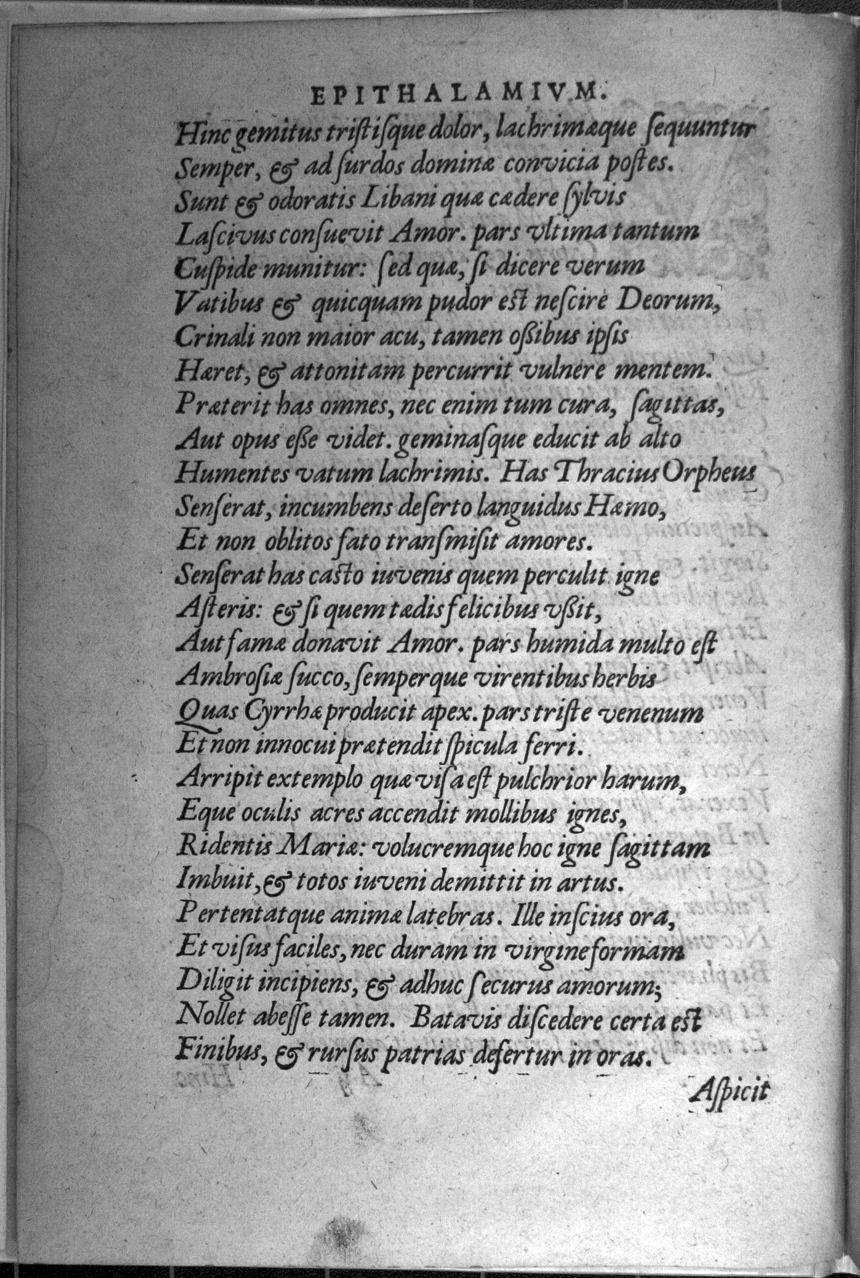 EPITHALAMIVM.
Hinc gemitus tristisque dolor, lachrimæque sequuntur
Semper, & ad surdos dominæ convicia postes.
Sunt & odoratis Libani quæ cædere sylvis
Lascivus consuevit Amor. pars vltima tantum
Cuspide munitur: sed quæ, si dicere verum
Vatibus & quicquam pudor est nescire Deorum,
Crinali non maior acu, tamen oßibus ipsis
Hæret, & attonitam percurrit vulnere mentem.
Præterit has omnes, nec enim tum cura, sagittas,
Aut opus eße videt. geminasque educit ab alto
Humentes vatum lachrimis. Has Thracius Orpheus
Senserat, incumbens deserto languidus Hæmo,
Et non oblitos fato transmisit amores.
Senserat has casto iuvenis quem perculit igne
Asteris: & si quem tædis felicibus vßit,
Aut famæ donavit Amor. pars humida multo est
Ambrosiæ succo, semperque virentibus herbis
Quas Cyrrhæ producit apex. pars triste venenum
Et non innocui prætendit spicula ferri.
Arripit extemplo quæ visa est pulchrior harum,
Eque oculis acres accendit mollibus ignes,
Ridentis Mariæ: volucremque hoc igne sagittam
Imbuit, & totos iuveni demittit in artus.
Pertentatque animæ latebras. Ille inscius ora,
Et visus faciles, nec duram in virgine formam
Diligit incipiens, & adhuc securus amorum;
Nollet abesse tamen. Batavis discedere certa est
Finibus, & rursus patrias defertur in oras.
Aspicit